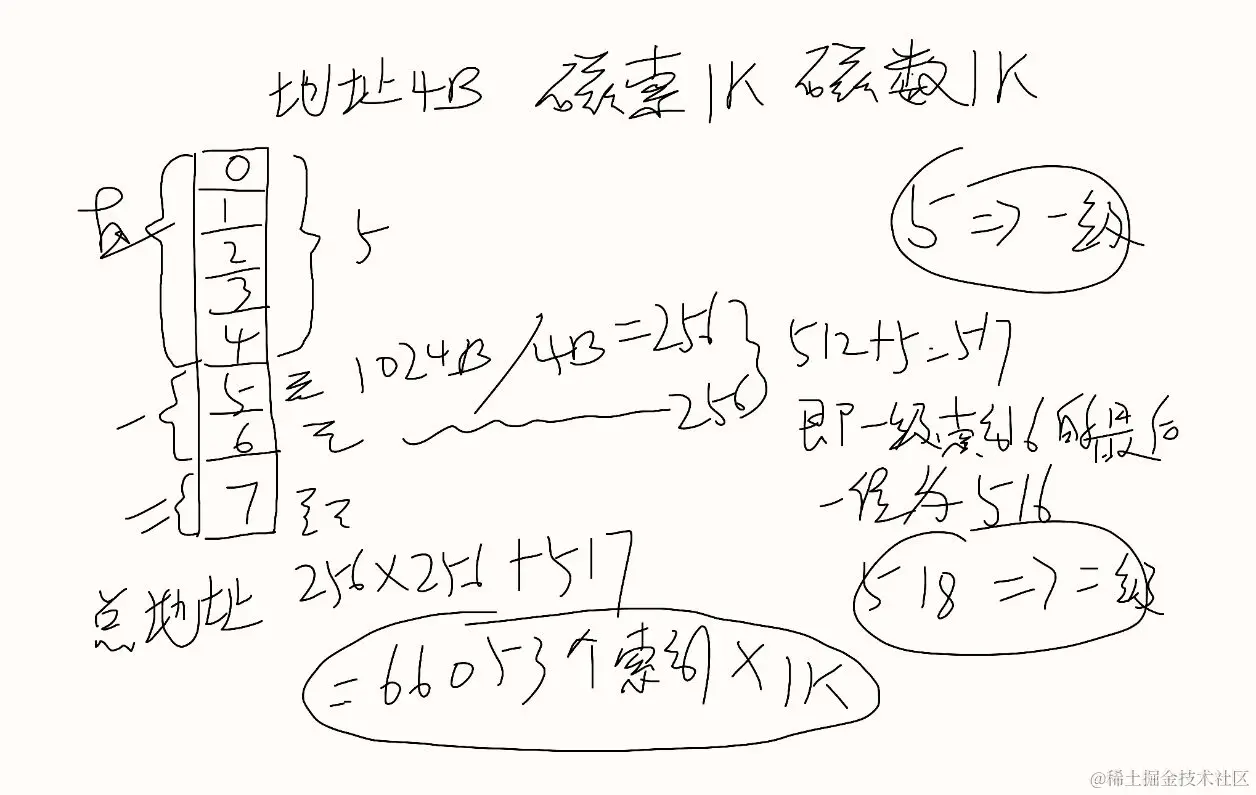 地址4B 磁索1K 磁数1K
直
0
1
2
3
4
5
5 => 一级
一
5
6
1024B/4B=256
256
512+5=517
即一级索引6的最后
一位为516
二
7
518 => 二级
总地址 256×256+517
=66053个索引×1K
@稀土掘金技术社区